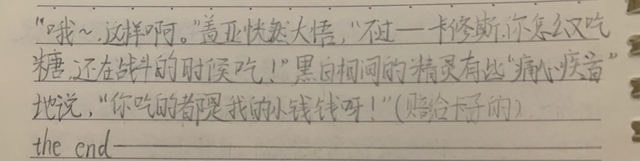 “哦~,这样啊。”盖亚恍然大悟,“不过——卡修斯,你怎么又吃
糖,还在战斗的时候吃!”黑白相间的精灵有些“痛心疾首”
地说,“你吃的都是我的小钱钱呀!”(赔给卡子的)
the end——